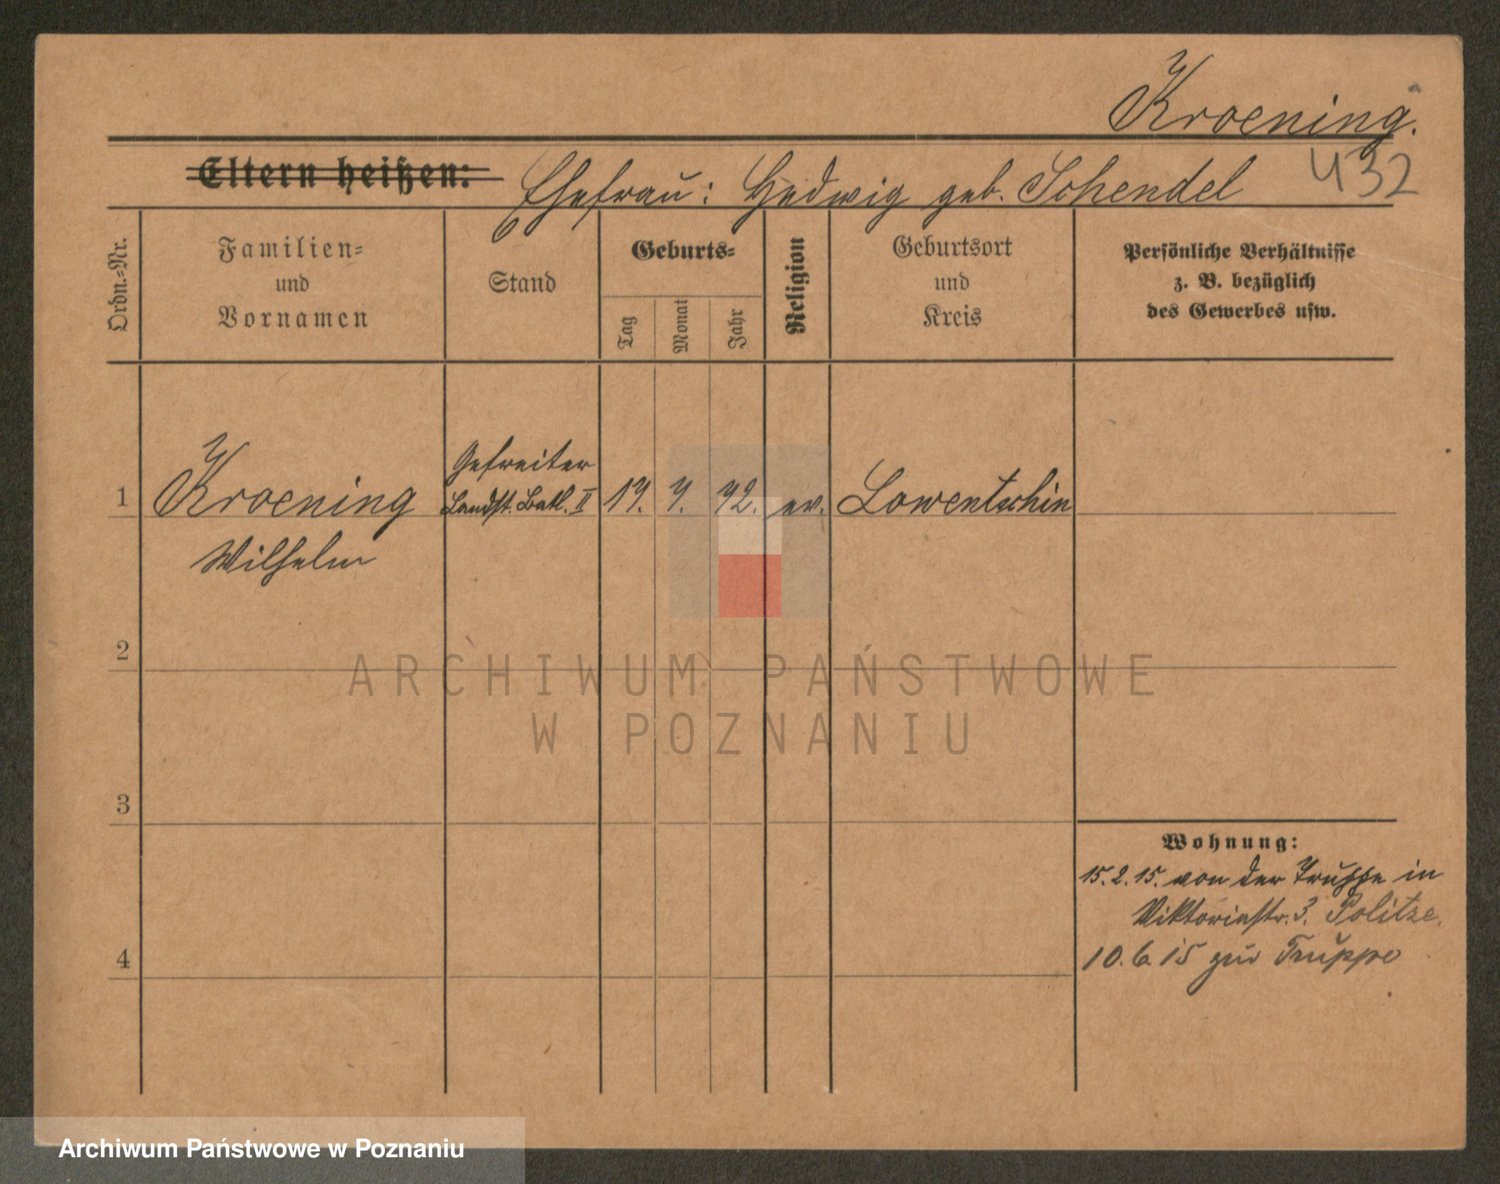 Kroening.
432
Eltern heißen: Ehefrau: Hedwig geb. Schendel
Ordn.=Nr.
Familien=
und
Vornamen
Stand
Geburts=
Tag
Monat
Jahr
Religion
Geburtsort
und
Kreis
Persönliche Verhältnisse
z. B. bezüglich
des Gewerbes usw.
1
Kroening
Wilhelm
Gefreiter
Landst. Batl. II
ev.
Lowentschin
2
3
4
Wohnung:
15.2.15. von der Truppe in
Viktoriastr. 3.
10.6.15 zur Truppe
ARCHIWUM PAŃSTWOWE
W POZNANIU
Archiwum Państwowe w Poznaniu